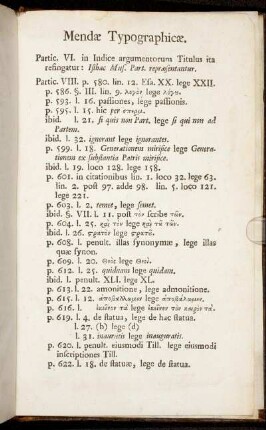 Mendæ Typographicæ.
Partic. VI. in Indice argumentorum Titulus ita
refingatur: Isthæc Mus. Part. repræsentantur.
Partic. VIII. p. 580. lin. 12. Ess. XX. lege XXII.
p. 586. §. III. lin. 9.
p. 593. l. 16. passiones, lege passionis.
p. 595. l. 15. hic per
ibid. l. 21. si quis non Part, lege si qui non ad
Partem.
ibid. l. 32. ignorant lege ignorantes.
p. 599. l. 18. Generationem mirifice lege Genera-
tionem ex substantia Patris mirifice.
ibid. l. 19. loco 128. lege 158.
p. 601. in citationibus lin. 1. loco 32. lege 63.
lin. 2. post 97. adde 98. lin. 5. loco 121.
lege 221.
p. 603. l. 2. lege
ibid. §. VII. l. 11. post τὸν scribe τῶν.
p. 604. l. 25. καὶ τὸν lege καὶ τὰ τῶν.
ibid. l. 26. lege
p. 608. l. penult. illas synonymæ, lege illas
quæ synon.
p. 609. l. 20. Θεὸς lege Θεοῦ.
p. 612. l. 25. quidnam lege quidam.
ibid. l. penult. XLI. lege XL.
p. 613. l. 22. amonitione, lege admonitione.
p. 615. l. 12. lege
p. 616. l. lege
p. 619. l. 4. de status, lege de hac status.
l. 27. (h) lege (d)
l. 31. inauratis lege inauguratis.
p. 620. l. penult. eiusmodi Till. lege eiusmodi
inscriptiones Till.
p. 622. l. 18. de statuæ, lege de status.